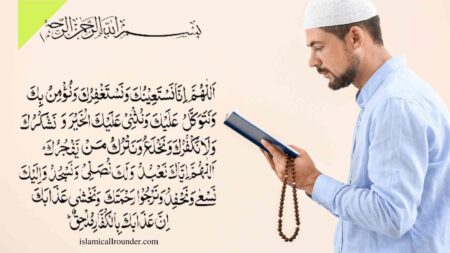 بِسْمِ اللّٰهِ الرَّحْمٰنِ الرَّحِيْمِ
اَللّٰهُمَّ اِنَّا نَسْتَعِيْنُكَ وَنَسْتَغْفِرُكَ وَنُؤْمِنُ بِكَ
وَنَتَوَكَّلُ عَلَيْكَ وَنُثْنِيْ عَلَيْكَ الْخَيْرَ وَ نَشْكُرُكَ
وَلَا نَكْفُرُكَ وَنَخْلَعُ وَنَتْرُكُ مَنْ يَّفْجُرُكَ
اَللّٰهُمَّ اِيَّاكَ نَعْبُدُ وَلَكَ نُصَلِّيْ وَنَسْجُدُ وَاِلَيْكَ
نَسْعٰى وَنَحْفِدُ وَنَرْجُوْا رَحْمَتَكَ وَنَخْشٰى عَذَابَكَ
اِنَّ عَذَابَكَ بِالْكُفَّارِ مُلْحِقٌ
islamicallrounder.com